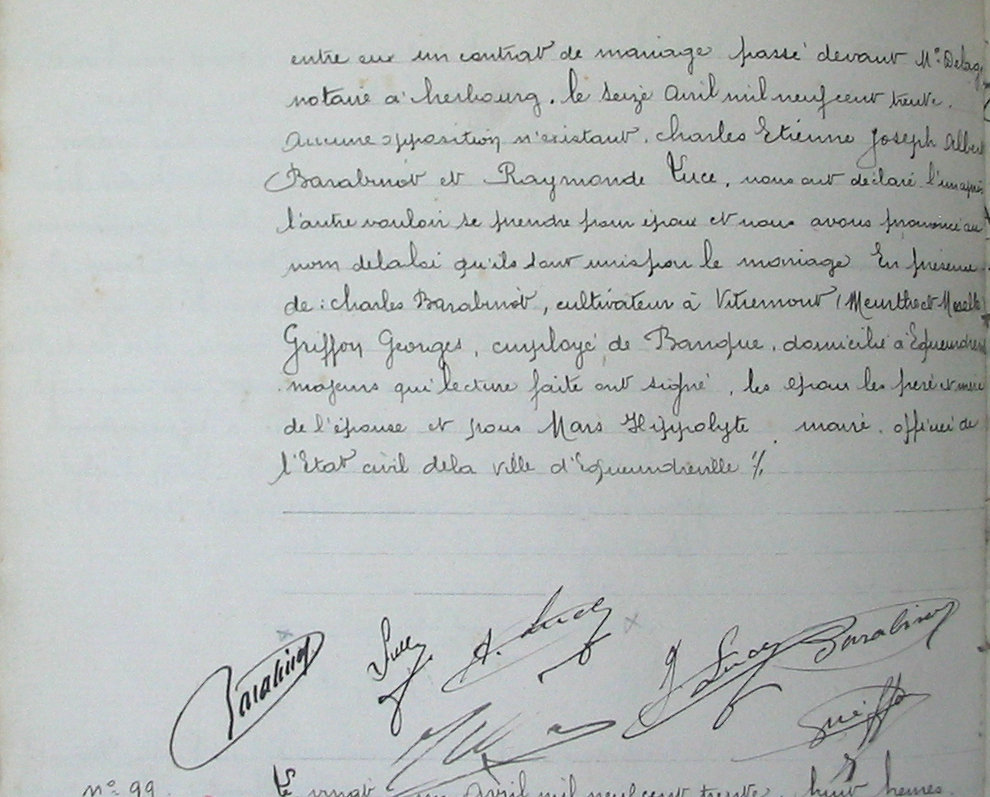 entre eux un contrat de mariage passé devant Me Delag
notaire à Cherbourg, le seize Avril mil neuf cent trente.
Aucune opposition n'existant, Charles Etienne Joseph Albert
Barabinot et Raymonde Luce, nous ont déclaré l'un après
l'autre vouloir se prendre pour époux et nous avons prononcé au
nom de la loi qu'ils sont unis par le mariage En présence
de : Charles Barabinot, cultivateur à Vitrimont (Meurthe et Moselle
Griffon Georges, employé de Banque, domicilié à Equeurdrev
majeurs qui lecture faite ont signé, les époux les père et mère
de l'épouse et nous Mars Hippolyte, maire, officier de
l'Etat civil de la ville d'Equeurdreville ./.
Barabinot Luce A. Luce J. Luce Barabinot
Griffon
n° 99 Le vingt un Avril mil neuf cent trente, huit heures